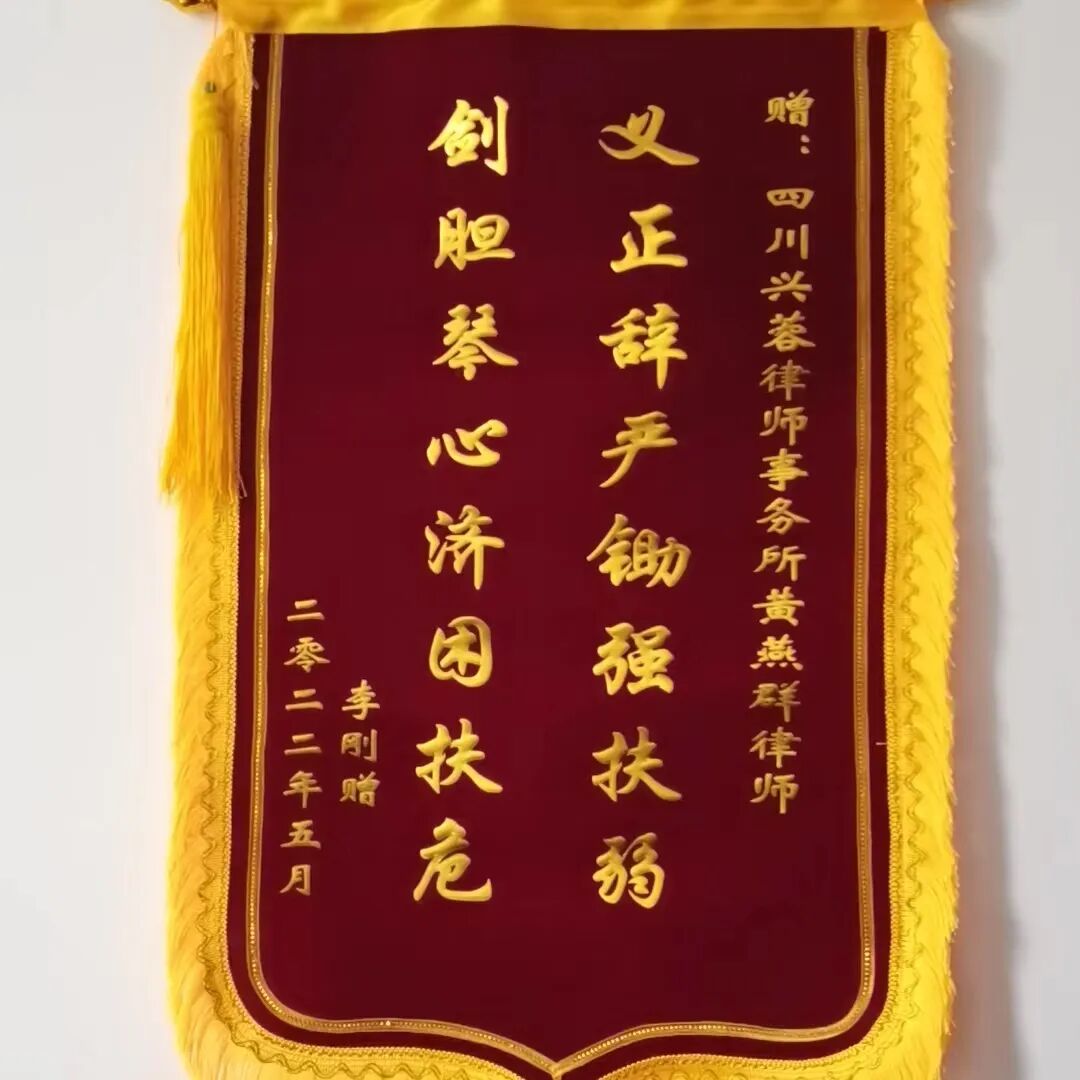 赠：四川兴蓉律师事务所黄燕群律师
义正辞严锄强扶弱
剑胆琴心济困扶危
李刚赠
二零二二年五月